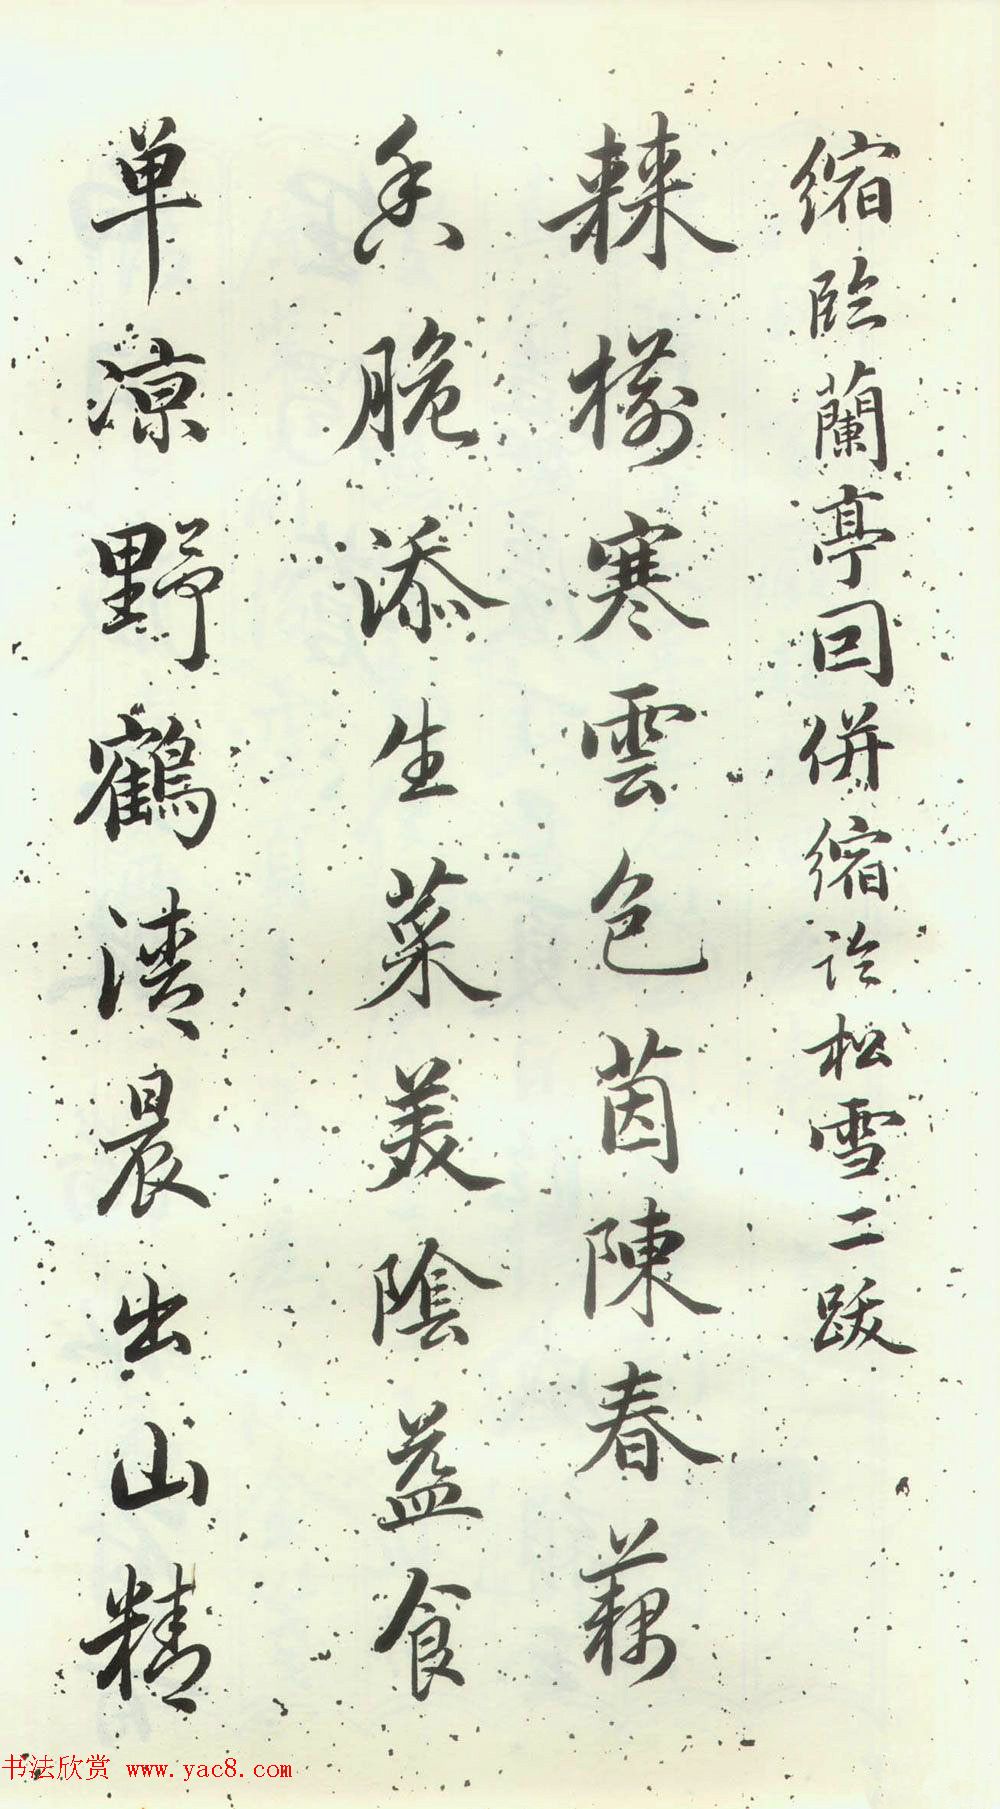 縮臨蘭亭因併縮临松雪二跋
棘樹寒雲色茵陳春藕
香脆添生菜美陰益食
单凉野鶴清晨出山精
书法欣赏 www.yac8.com